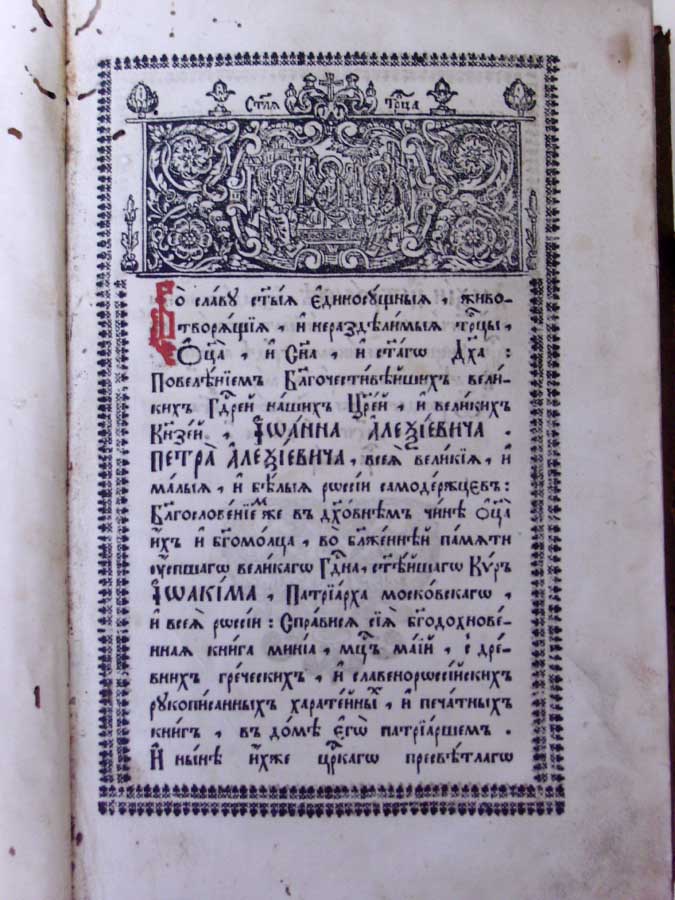 Ст҃ла Трⷪ҇ца
Во сла́ву ст҃ы́ѧ є҆диносꙋ́щныѧ, живо-
творѧ́щїѧ, и҆ нераздѣ́лимыѧ трⷪ҇цы,
Ѻ҆ц҃а̀, и҆ Сн҃а, и҆ ст҃а́гѡ Дх҃а:
Повелѣ́нїемъ Бл҃гочести́вѣйшихъ вели́-
кихъ Гдⷭ҇рей на́шихъ Цр҃е́й, и҆ вели́кихъ
Кнѧзе́й, І҆ѡа́нна А҆леѯі́евича.
Петра̀ А҆леѯі́евича, всеѧ̀ вели́кїѧ, и҆
ма́лыѧ, и҆ бѣ́лыѧ рѡссі́и самоде́ржцєвъ:
Бл҃гослове́нїемже въ дх҃о́внѣмъ чи́нѣ ѻ҆ц҃а̀
и҆́хъ и҆ бг҃омо́лца, во бл҃же́ннѣй па́мѧти
ᲂу҆се́пшагѡ вели́кагѡ Гдⷭ҇на, ст҃ѣ́йшагѡ Кѷ́ръ
І҆ѡаки́ма, Патрїа́рха моско́вскагѡ,
и҆ всеѧ̀ рѡссі́и: Спра́висѧ сїѧ̀ бг҃одохнове́-
нная кни́га мині́а, мц҃ъ ма́їй, с̾ дре́-
внихъ гре́ческихъ, и҆ славенорѡссі́йскихъ
рꙋкопи́санныхъ харате́йныхъ, и҆ печа́тныхъ
кни́гъ, въ до́мѣ є҆гѡ̀ патрїа́ршемъ.
И҆ ны́нѣ и҆́хже црⷭ҇кагѡ пресвѣ́тлагѡ